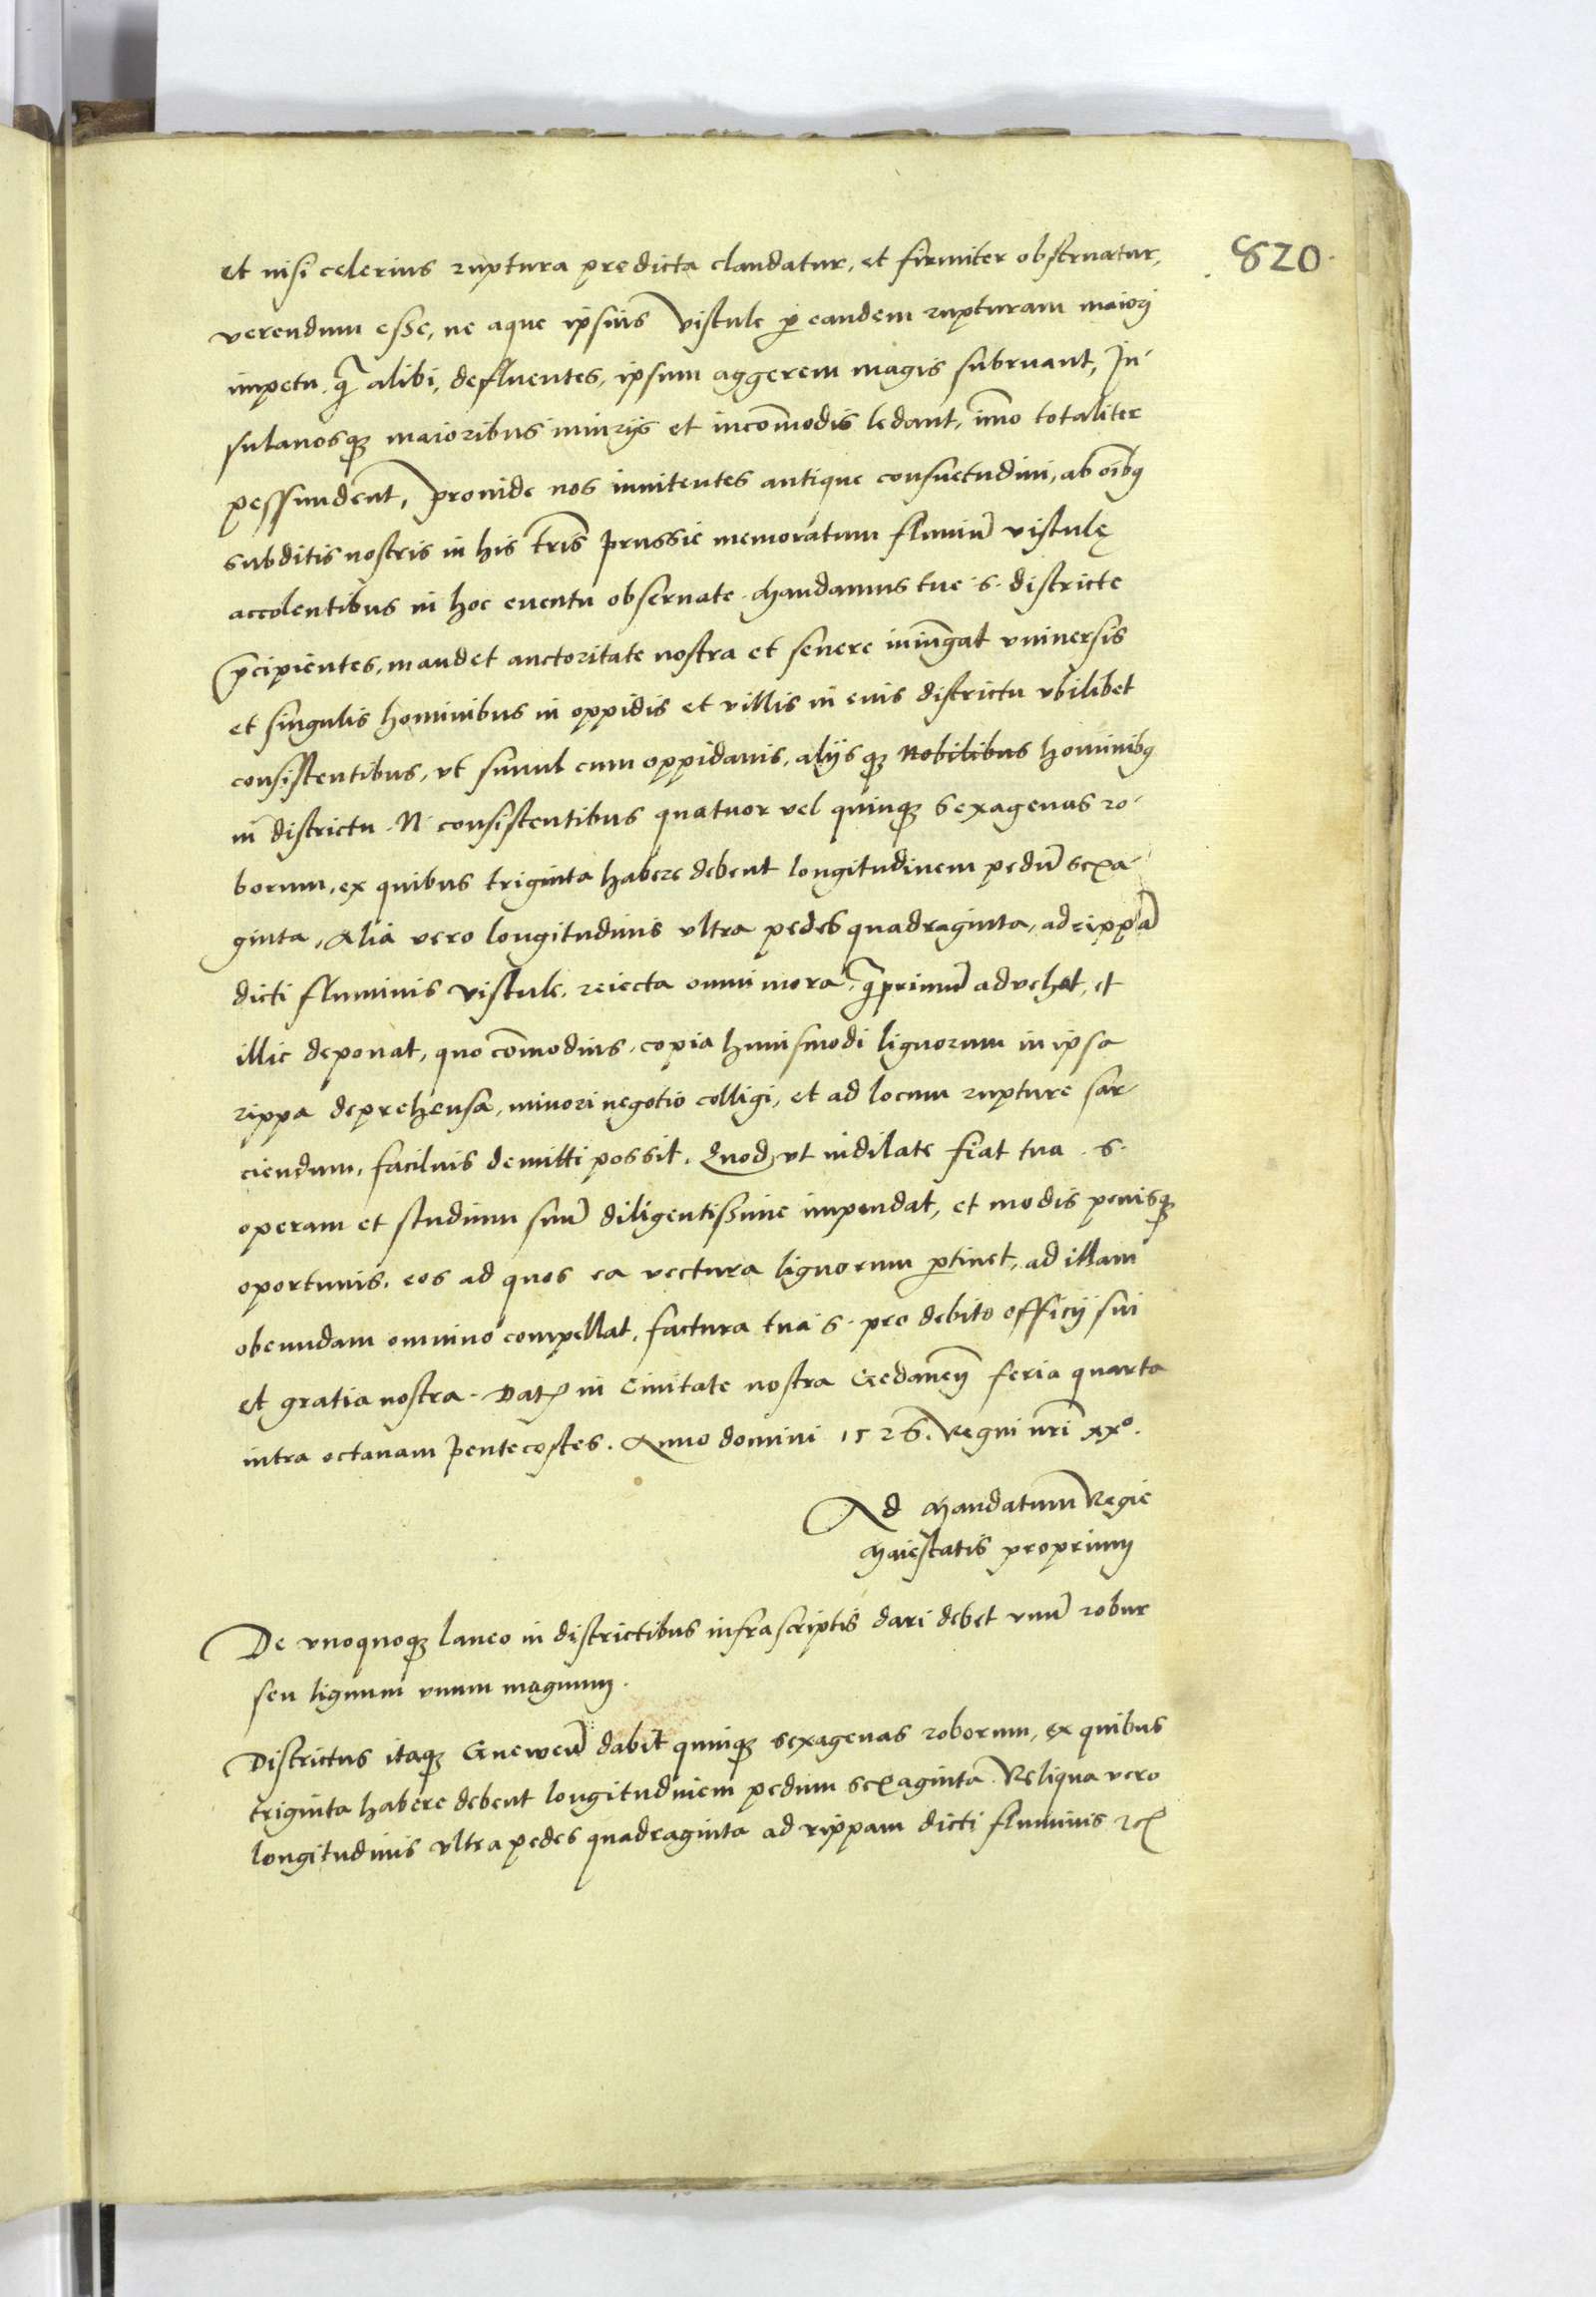 820
et nisi celerius ruptura predicta claudatur, et firmiter obstruatur,
verendum esse, ne aque ipsius Vistule p̱ eandem rupturam maiori
impetu q̃ alibi, defluentes, ipsum aggerem magis subruant, In-
sulanosq; maioribus iniurijs et incom̄odis ledant, im̄o totaliter
pessundent, Proinde nos innitentes antique consuetudini, ab oībꝫ
subditis nostris in his tr̄is Prussie memoratum fluuiū vistulę
accolentibus in hoc euentu obseruate. Mandamus tue s. districte
p̄cipientes, mandet auctoritate nostra et seuere iniūgat vniuersis
et singulis hominibus in oppidis et villis in euis districtu vbilibet
consistentibus, vt simul cum oppidanis, alijsq; nobilibus hominibꝫ
in districtu .N. consistentibus quatuor vel quinq; sexagenas ro-
borum, ex quibus triginta habere debent longitudinem pedū sexa-
ginta, Alia vero longitudinis vltra pedes quadraginta, ad rippā
dicti fluminis Vistule, reiecta omni mora, q̃primū aduehat, et
illic deponat, quo com̄odius, copia huiusmodi lignorum in ipsa
rippa deprehensa, minori negotio colligi, et ad locum rupture sar-
ciendum, facilius demitti possit. Quod vt indilate fiat tua .s.
operam et studium suū diligentissime impendat, et modis penisq;
oportunis, eos ad quos ea vectura lignorum p̱tinet, ad illam
obeundam omnino compellat, factura tua s. pro debito officij sui
et gratia nostra. Datꝭ in Ciuitate nostra Gedaneñ feria quarta
intra octauam Pentecostes. Anno domini 1526. Regni nr̄i xxº.
Ad Mandatum Regie
Maiestatis proprium
De vnoquoq; laneo in districtibus infrascriptis dari debet vnū robur
seu lignum vnum magnum.
Districtus itaq; Gneweñ dabit quinq; sexagenas roborum, ex quibus
triginta habere debent longitudinem pedum sexaginta Reliqua vero
longitudinis vltra pedes quadraginta ad rippam dicti fluminis ꝛcꝭ